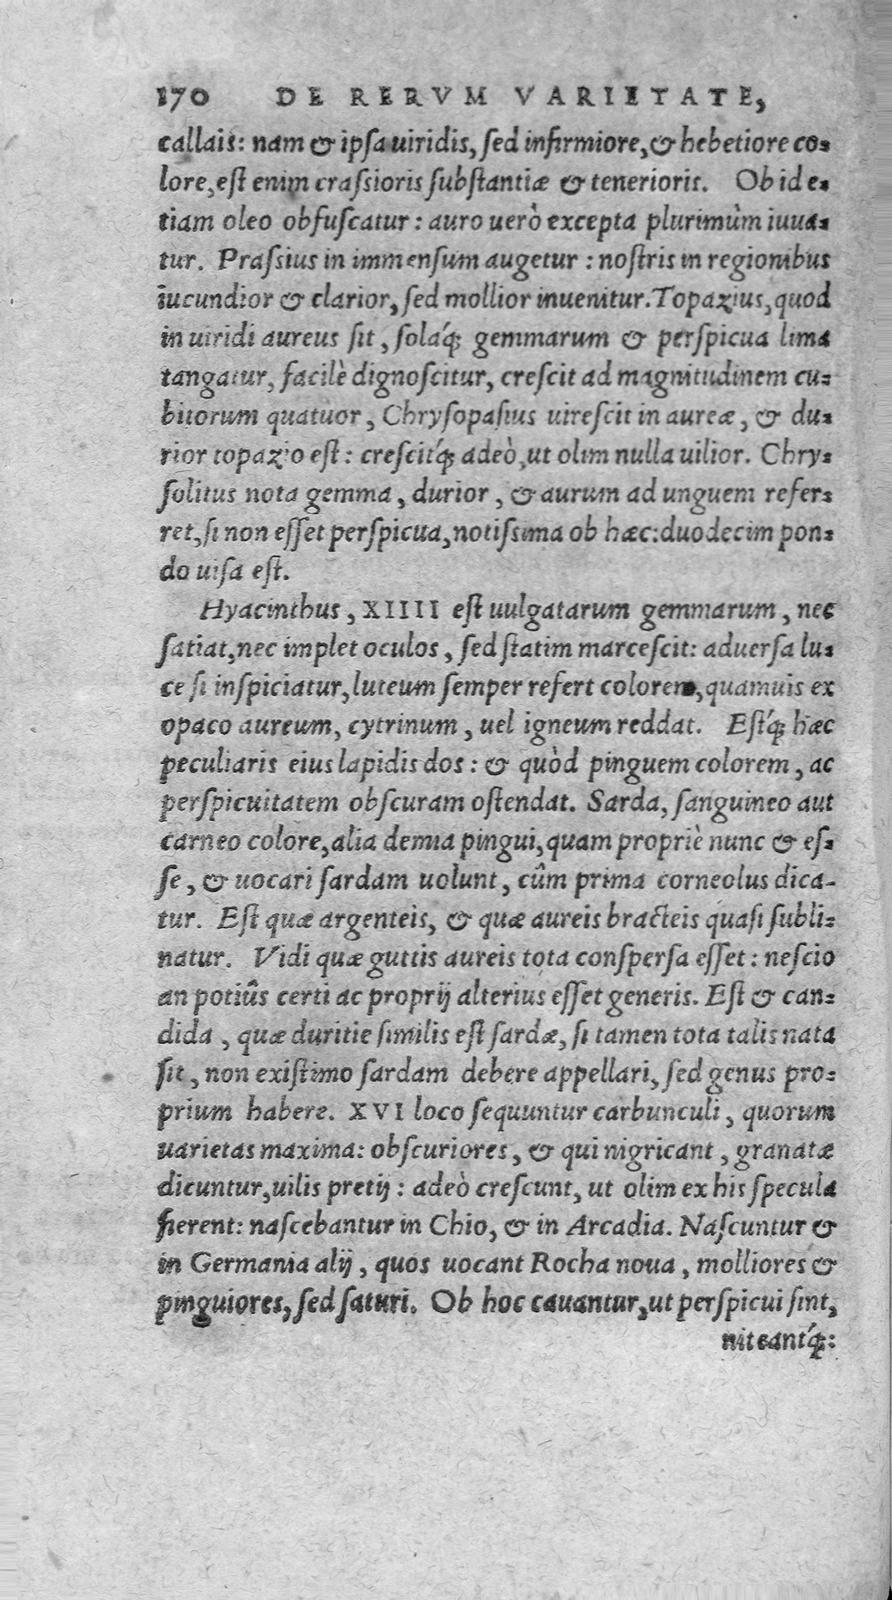 170 DE RERVM VARIETATE,
callais: nam & ipsa uiridis, sed infirmiore, & hebetiore co-
lore, est enim crassioris substantiæ & tenerioris. Ob id e-
tiam oleo obfuscatur: auro uerò excepta plurimùm iuua-
tur. Prassius in immensum augetur: nostris in regionibus
iucundior & clarior, sed mollior inuenitur. Topazius, quod
in uiridi aureus sit, solaq́; gemmarum & perspicua lima
tangatur, facilè dignoscitur, crescit ad magnitudinem cu-
bitorum quatuor, Chrysopasius uirescit in aureæ, & du-
rior topazio est: crescitq́; adeò, ut olim nulla uilior. Chry-
solitus nota gemma, durior, & aurum ad unguem refer-
ret, si non esset perspicua, notissima ob hæc: duodecim pon-
do uisa est.
Hyacinthus, XIIII est uulgatarum gemmarum, nec
satiat, nec implet oculos, sed statim marcescit: aduersa lu-
ce si inspiciatur, luteum semper refert colorem, quamuis ex
opaco aureum, cytrinum, uel igneum reddat. Estq́; hæc
peculiaris eius lapidis dos: & quòd pinguem colorem, ac
perspicuitatem obscuram ostendat. Sarda, sanguineo aut
carneo colore, alia demta pingui, quam propriè nunc & es-
se, & uocari sardam uolunt, cûm prima corneolus dica-
tur. Est quæ argenteis, & quæ aureis bracteis quasi subli-
natur. Vidi quæ guttis aureis tota conspersa esset: nescio
an potiûs certi ac proprij alterius esset generis. Est & can-
dida, quæ duritie similis est sardæ, si tamen tota talis nata
sit, non existimo sardam debere appellari, sed genus pro-
prium habere. XVI loco sequuntur carbunculi, quorum
uarietas maxima: obscuriores, & qui nigricant, granatæ
dicuntur, uilis pretij: adeò crescunt, ut olim ex his specula
fierent: nascebantur in Chio, & in Arcadia. Nascuntur &
in Germania alij, quos uocant Rocha noua, molliores &
pinguiores, sed saturi. Ob hoc cauantur, ut perspicui sint,
niteantq́;: